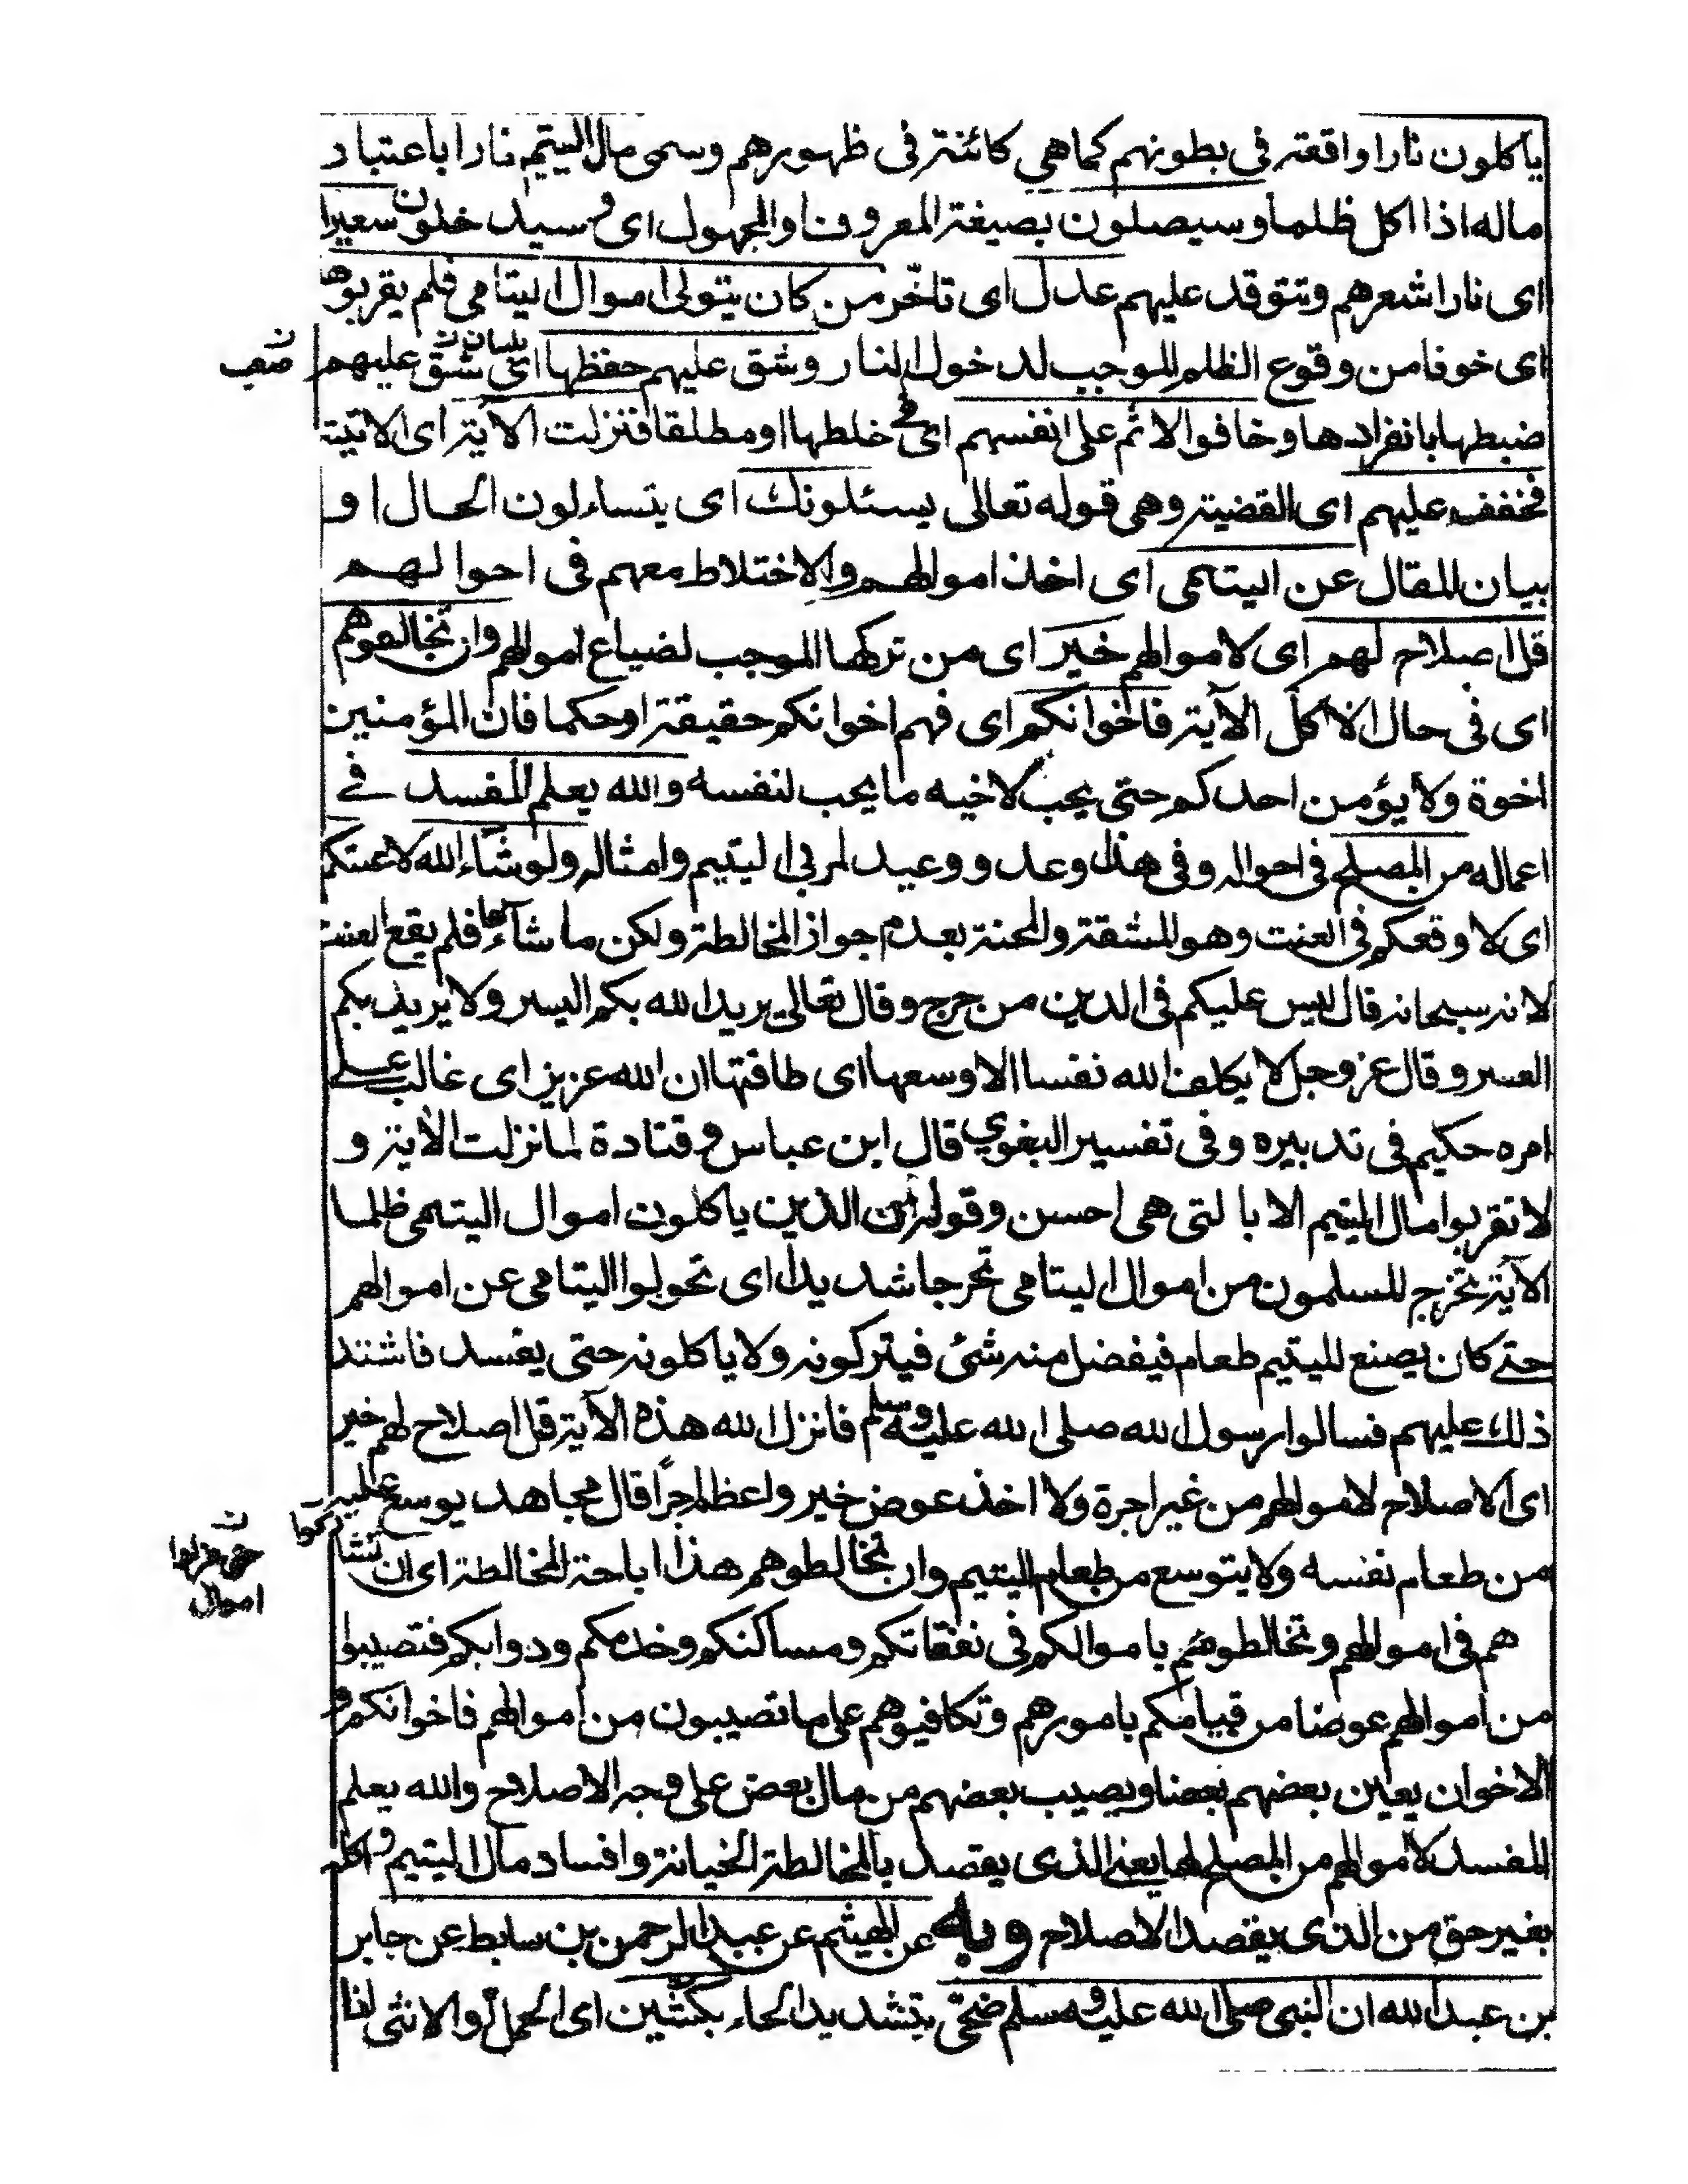 ياكلون نارا واقعة في بطونهم كما هي كائنة في ظهورهم وسمى مال اليتيم نارا باعتبار
ماله اذا اكل ظلما وسيصلون بصيغة المعروف والمجهول اى وسيدخلون سعيرا
اى نارا شعرهم وتتوقد عليهم عدل اى تاخّر من كان يتولى اموال اليتامى فلم يقربوها
اى خوفا من وقوع الظلم الموجب لدخول النار وشق عليهم حفظها اى شق عليهم
ضبطها بانفرادها وخافوا الاثم على انفسهم اى في خلطها او مطلقا فنزلت الآية اى الاتية
فخفف عليهم اى القضية وهى قوله تعالى يسئلونك اى يتساءلون الحال او
بيان المقال عن اليتمى اى اخذ اموالهم والاختلاط معهم فى احوالهم
قل اصلاح لهم اى لاموالهم خير اى من تركها الموجب لضياع اموالهم وان تخالطوهم
اى فى حال الاكل الآية فاخوانكم اى فهم اخوانكم حقيقة او حكما فان المؤمنين
اخوة ولا يؤمن احدكم حتى يحب لاخيه ما يحب لنفسه والله يعلم المفسد في
اعماله من المصلح فى احواله وفى هذا وعد ووعيد لمربى اليتيم وامثاله ولو شاء الله لاعنتكم
اى لاوقعكم فى العنت وهو المشقة والمحنة بعدم جواز المخالطة ولكن ما شاءها فلم يقع العنت
لانه سبحانه قال ليس عليكم فى الدين من حرج وقال تعالى يريد الله بكم اليسر ولا يريد بكم
العسر وقال عز وجل لا يكلف الله نفسا الا وسعها اى طاقتها ان الله عزيز اى غالب على
امره حكيم فى تدبيره وفى تفسير البغوي قال ابن عباس وقتادة لما نزلت الآية و
لا تقربوا مال اليتيم الا بالتى هى احسن وقوله ان الذين ياكلون اموال اليتمى ظلما
الآية تخرج المسلمون من اموال اليتامى تحرجا شديدا اى تحولوا اليتامى عن اموالهم
حتى كان يصنع لليتيم طعام فيفضل منه شئ فيتركونه ولا ياكلونه حتى يفسد فاشتد
ذلك عليهم فسالوا رسول الله صلى الله عليه وسلم فانزل الله هذه الآية قل اصلاح لهم خير
اى الاصلاح لاموالهم من غير اجرة ولا اخذ عوض خير واعظم اجرًا قال مجاهد يوسع عليه
من طعام نفسه ولا يتوسع من طعام اليتيم وان تخالطوهم هذا اباحة المخالطة اى ان تشاركوا
هم فى اموالهم وتخالطوهم باموالكم فى نفقاتكم ومساكنكم وخدمكم ودوابكم فتصيبوا
من اموالهم عوضا من قيامكم بامورهم وتكافيوهم على ما تصيبون من اموالهم فاخوانكم و
الاخوان يعين بعضهم بعضا ويصيب بعضهم من مال بعض على وجه الاصلاح والله يعلم
المفسد لاموالهم من المصلح لها يعنى الذى يقصد بالمخالطة الخيانة وافساد مال اليتيم واكله
بغير حق من الذى يقصد الاصلاح وبه عن الهيثم عن عبد الرحمن بن سابط عن جابر
بن عبد الله ان النبى صلى الله عليه وسلم ضحّى بتشديد الحاء بكبشين اى الحمل والانثى